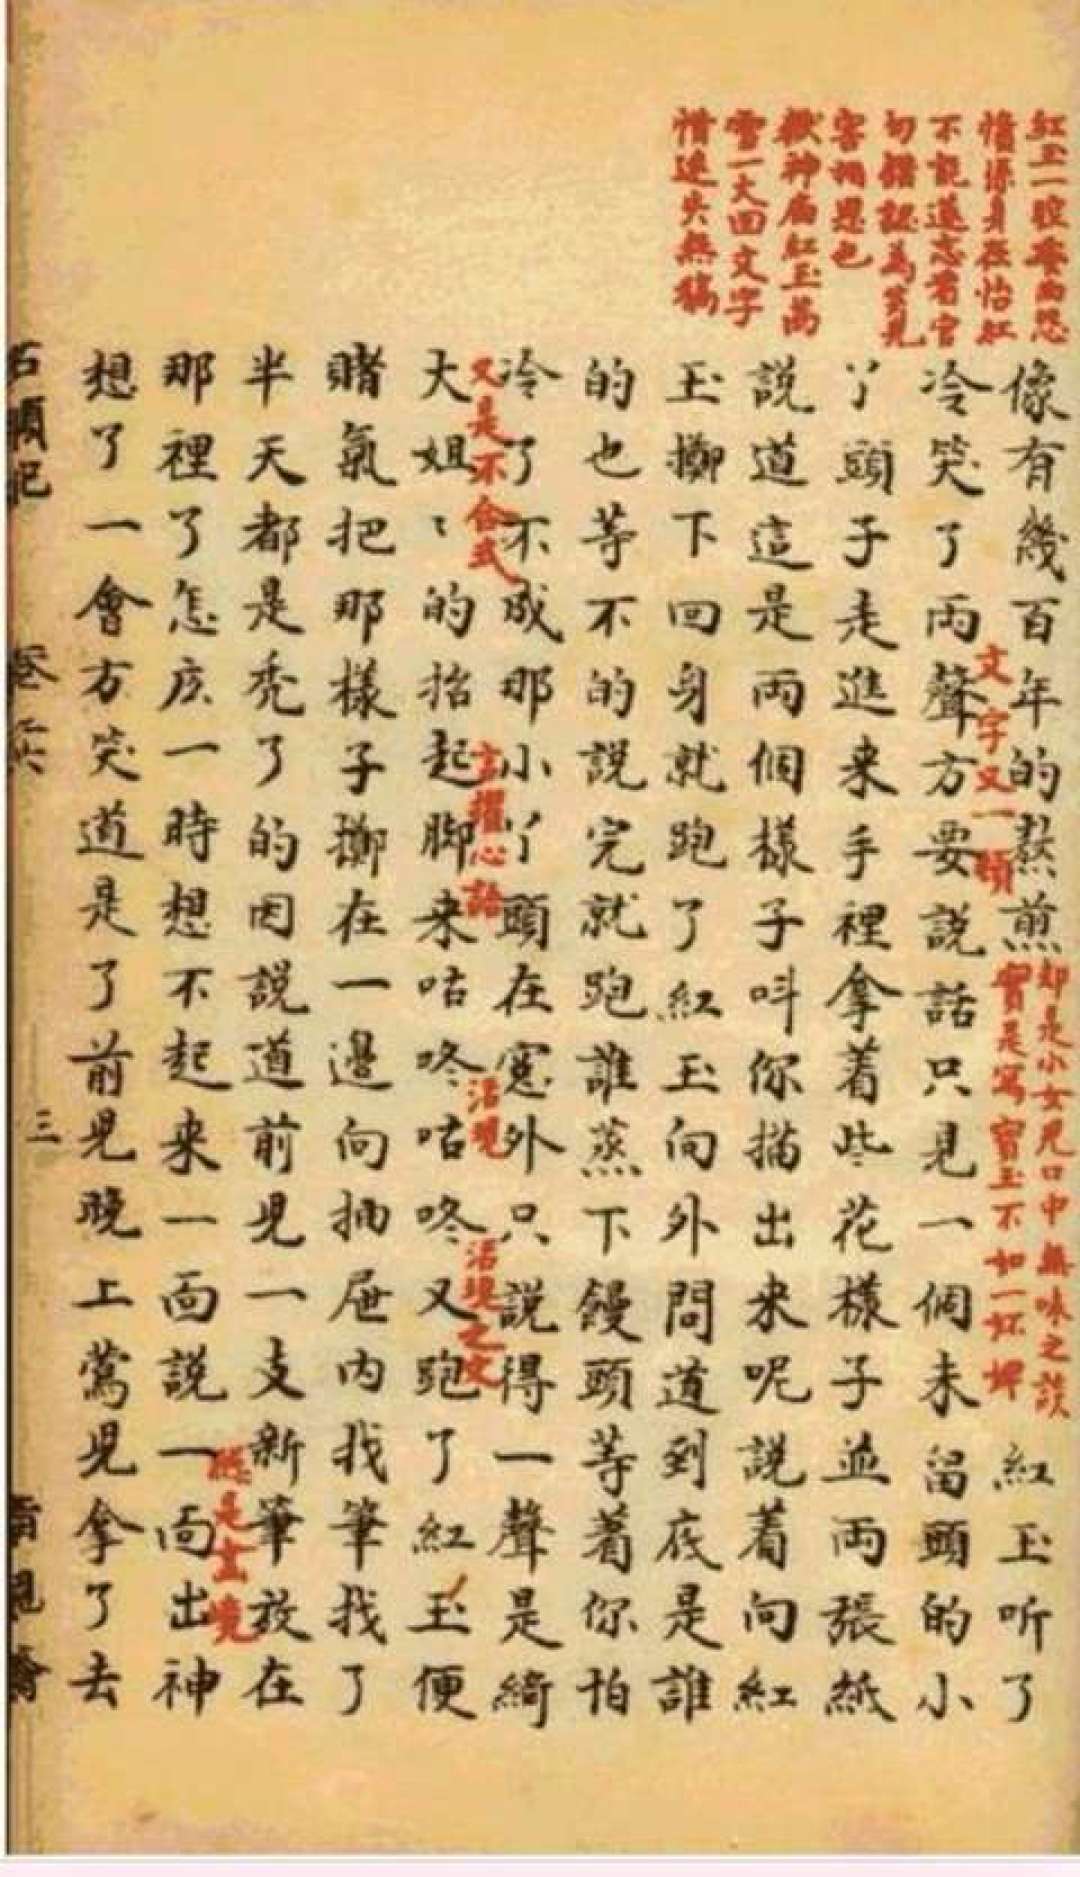 紅玉一腔委曲怨
憤係身在怡紅
不能遂志看官
勿錯認為芸兒
害相思也
獄神廟紅玉茜
雪一大回文字
惜迷失無稿
像有幾百年的熬煎
却是小女兒口中無味之談
實是寫寶玉不如一奴婢
紅玉听了
文字又一頓
冷笑了両聲方要說話只見一個未留頭的小
丫頭子走進来手裡拿着些花樣子並両張紙
說道這是両個樣子呌你描出来呢說着向紅
玉擲下回身就跑了紅玉向外問道到底是誰
的也等不的說完就跑誰蒸下饅頭等着你怕
冷了不成那小丫頭在窓外只說得一聲是綺
又是不合式
之擢心語
活現
活現之文
大姐〻的抬起脚来咕咚咕咚又跑了紅玉便
賭氣把那樣子擲在一邊向抽屉内找筆找了
半天都是秃了的因說道前児一支新筆放在
総是畫境
那裡了怎庅一時想不起来一面說一面出神
想了一會方笑道是了前児晚上鶯児拿了去
石頭記
卷
三
脂硯齋